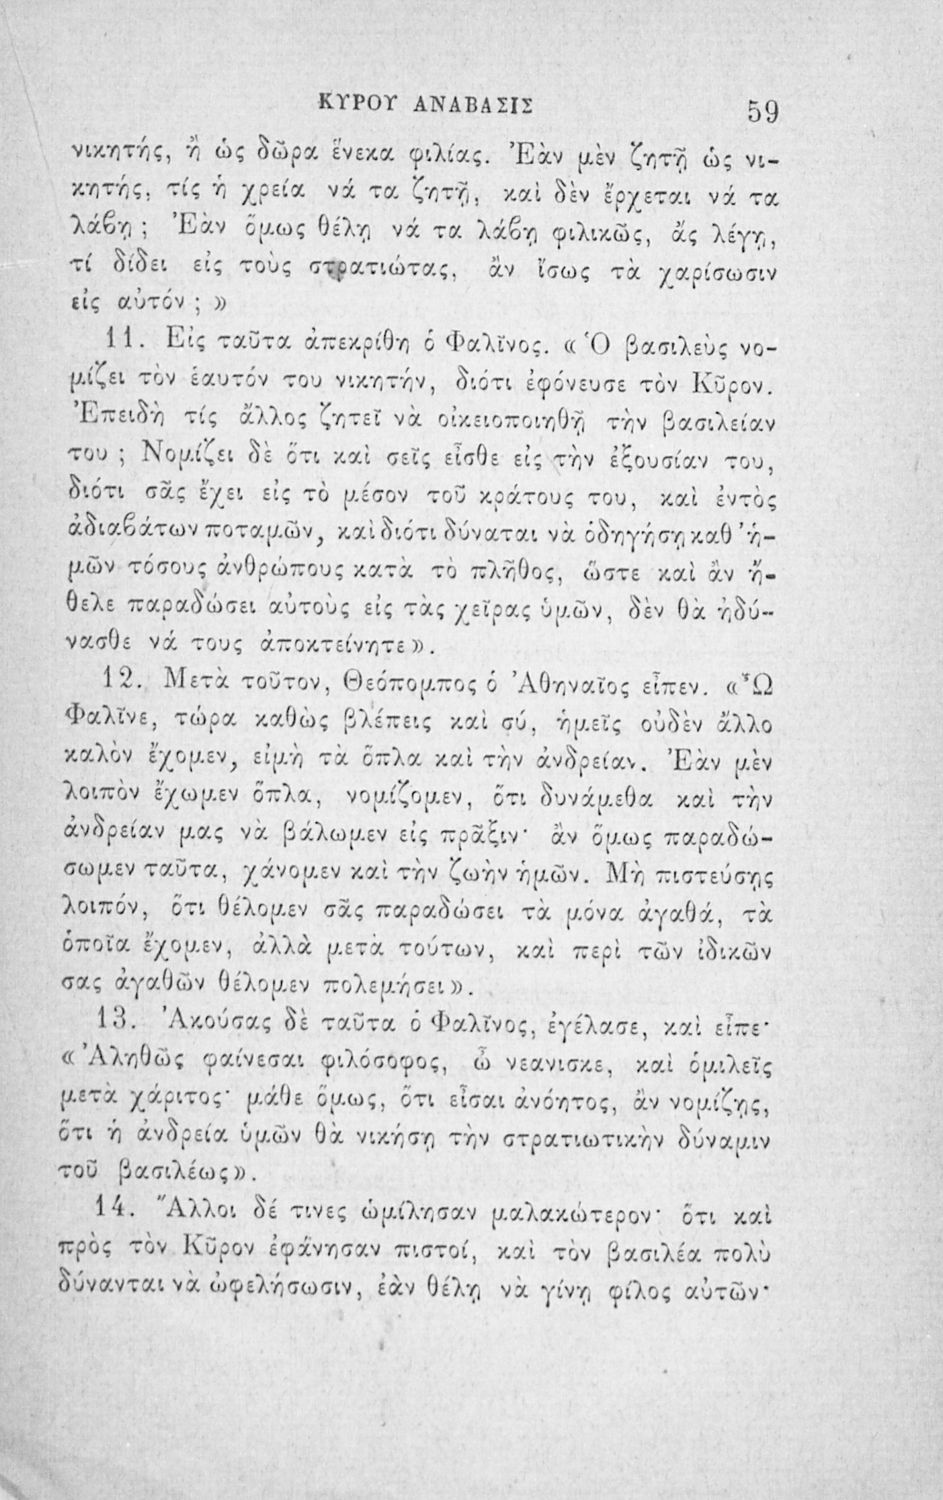 ΚΥΡΟΥ ΑΝΑΒΑΣΙΣ 59
νικητής, ἢ ὡς δῶρα ἕνεκα φιλίας. Ἐὰν μὲν ζητῇ ὡς νι-
κητής, τίς ἡ χρεία νά τα ζητῇ, καὶ δὲν ἔρχεται νά τα
λάβῃ ; Ἐὰν ὅμως θέλῃ νά τα λάβῃ φιλικῶς, ἄς λέγῃ,
τί δίδει εἰς τοὺς στρατιώτας, ἂν ἴσως τὰ χαρίσωσιν
εἰς αὐτόν ; »
11. Εἰς ταῦτα ἀπεκρίθη ὁ Φαλῖνος. « Ὁ βασιλεὺς νο-
μίζει τὸν ἑαυτόν του νικητήν, διότι ἐφόνευσε τὸν Κῦρον.
Ἐπειδὴ τίς ἄλλος ζητεῖ νὰ οἰκειοποιηθῇ τὴν βασιλείαν
του ; Νομίζει δὲ ὅτι καὶ σεῖς εἶσθε εἰς τὴν ἐξουσίαν του,
διότι σᾶς ἔχει εἰς τὸ μέσον τοῦ κράτους του, καὶ ἐντὸς
ἀδιαβάτων ποταμῶν, καὶ διότι δύναται νὰ ὁδηγήσῃ καθ’ ἡ-
μῶν τόσους ἀνθρώπους κατὰ τὸ πλῆθος, ὥστε καὶ ἂν ἤ-
θελε παραδώσει αὐτοὺς εἰς τὰς χεῖρας ὑμῶν, δὲν θὰ ἠδύ-
νασθε νά τους ἀποκτείνητε».
12. Μετὰ τοῦτον, Θεόπομπος ὁ Ἀθηναῖος εἶπεν. «Ὦ
Φαλῖνε, τώρα καθὼς βλέπεις καὶ σύ, ἡμεῖς οὐδὲν ἄλλο
καλὸν ἔχομεν, εἰμὴ τὰ ὅπλα καὶ τὴν ἀνδρείαν. Ἐὰν μὲν
λοιπὸν ἔχωμεν ὅπλα, νομίζομεν, ὅτι δυνάμεθα καὶ τὴν
ἀνδρείαν μας νὰ βάλωμεν εἰς πρᾶξιν· ἂν ὅμως παραδώ-
σωμεν ταῦτα, χάνομεν καὶ τὴν ζωὴν ἡμῶν. Μὴ πιστεύσῃς
λοιπόν, ὅτι θέλομεν σᾶς παραδώσει τὰ μόνα ἀγαθά, τὰ
ὁποῖα ἔχομεν, ἀλλὰ μετὰ τούτων, καὶ περὶ τῶν ἰδικῶν
σας ἀγαθῶν θέλομεν πολεμήσει».
13. Ἀκούσας δὲ ταῦτα ὁ Φαλῖνος, ἐγέλασε, καὶ εἶπε·
« Ἀληθῶς φαίνεσαι φιλόσοφος, ὦ νεανισκε, καὶ ὁμιλεῖς
μετὰ χάριτος· μάθε ὅμως, ὅτι εἶσαι ἀνόητος, ἂν νομίζῃς,
ὅτι ἡ ἀνδρεία ὑμῶν θὰ νικήσῃ τὴν στρατιωτικὴν δύναμιν
τοῦ βασιλέως».
14. Ἄλλοι δέ τινες ὡμίλησαν μαλακώτερον· ὅτι καὶ
πρὸς τὸν Κῦρον ἐφάνησαν πιστοί, καὶ τὸν βασιλέα πολὺ
δύνανται νὰ ὠφελήσωσιν, ἐὰν θέλῃ νὰ γίνῃ φίλος αὐτῶν·